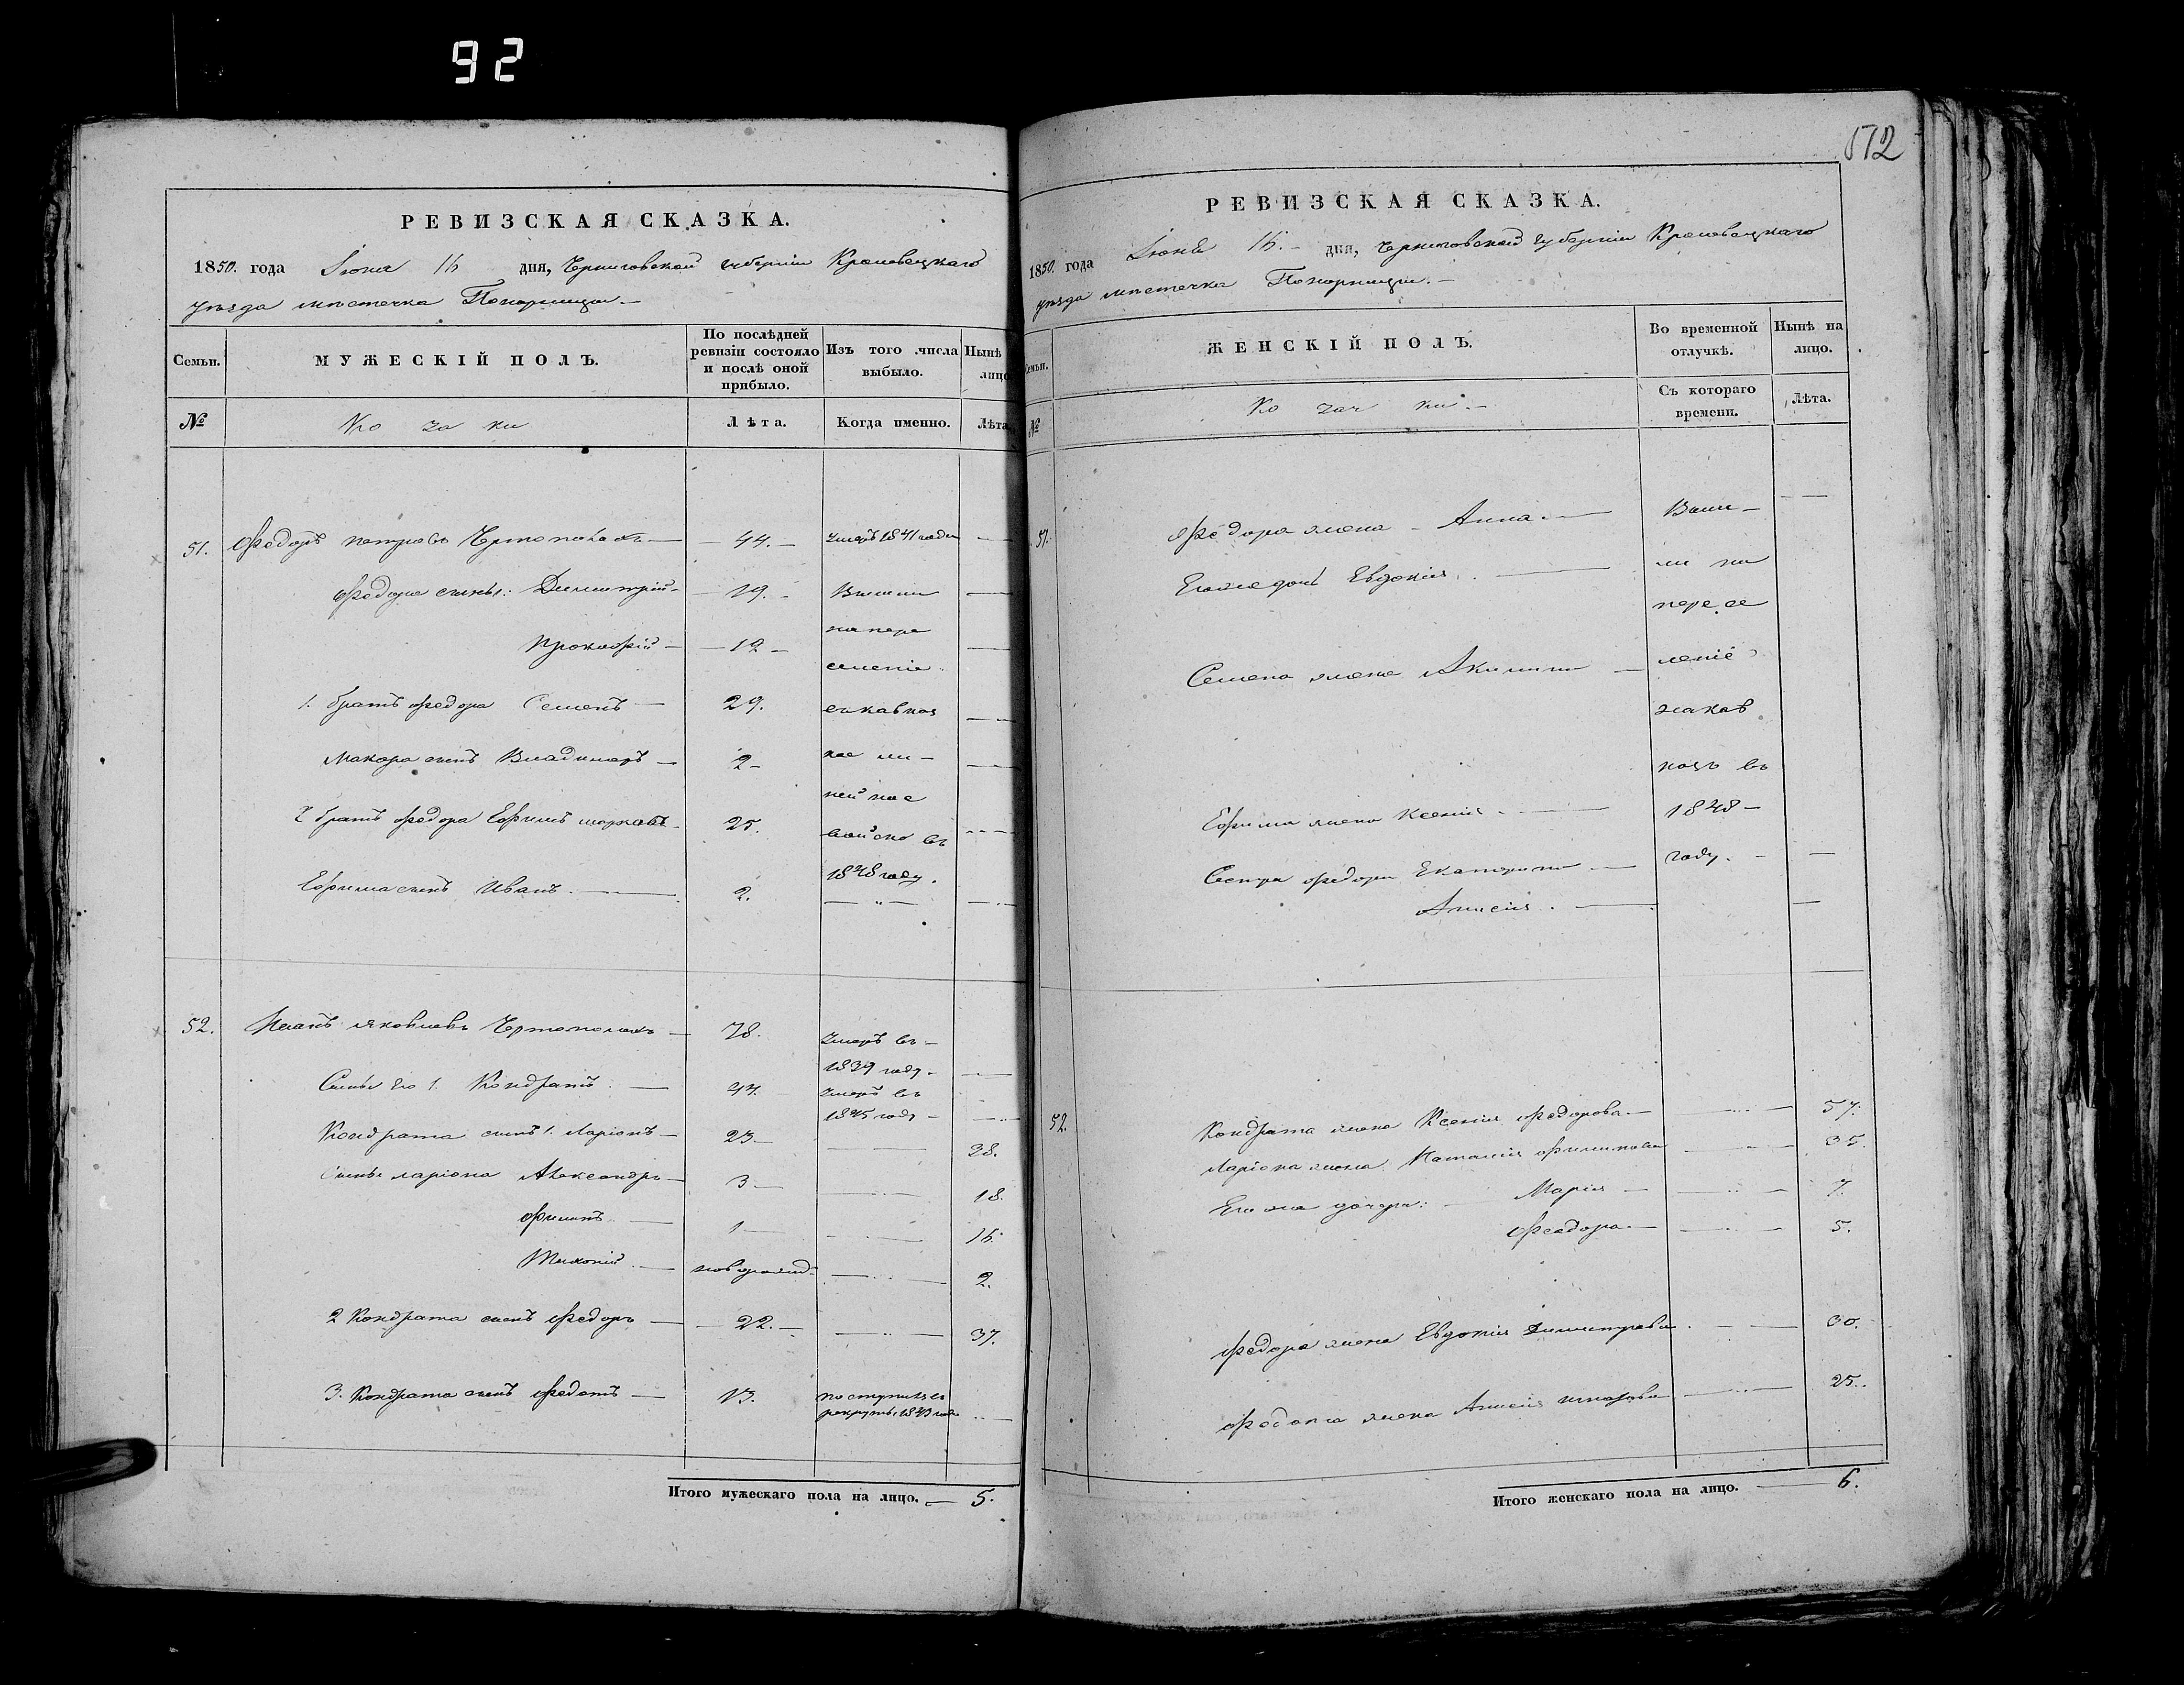 92
РЕВИЗСКАЯ СКАЗКА.
1850. года Іюня 16 дня, Черниговской губерніи Кролевецкаго
уѣзда мѣстечка Понорницы.
Семьи.
МУЖЕСКІЙ ПОЛЪ.
По послѣдней ревизіи состояло и послѣ оной прибыло.
Изъ того числа выбыло.
Нынѣ лицо
№
Козаки
Лѣта.
Когда именно.
Лѣта
51. Федоръ Петровъ — 44. — умеръ 1841 года —
Федора сыны: Димитрій — 19. — Вышли —
Прокофій — 12 — на пере
селеніе
1. братъ Федора Семенъ — 29. —
Макара сынъ Владимеръ — 2 —
2 братъ Федора Ефимъ — 25.
войско въ
Ефима сынъ Иванъ. — 2. 1848 году.
52. Яковлевъ — 78. умеръ въ
1839 году —
Сыны его 1. Кондратъ — 44. умеръ въ
1845 году —
Кондрата сынъ 1. Ларіонъ — 23 — 38.
Сыны Ларіона Александръ — 3 — 18.
Филипъ — 1 — 16.
новорожд. — 2.
2 Кондрата сынъ Федоръ — 22. — 37.
3. Кондрата сынъ Федотъ — 13. поступилъ въ
рекруты 1843 года
Итого мужескаго пола на лицо. — 5.
512
РЕВИЗСКАЯ СКАЗКА.
1850. года Іюня 16. дня, Черниговской губерніи Кролевецкаго
уѣзда мѣстечка Понорницы.
Семьи.
ЖЕНСКІЙ ПОЛЪ.
Во временной отлучкѣ.
Нынѣ на лицо.
№
Козачки.
Съ котораго времени.
Лѣта.
51. Федора жена — Анна. — Выш—
Его же дочь Евдокія. — ли на
пересе
Семена жена Акилина — леніе
закав
казъ въ
Ефима жена Ксенія. — 1848 —
Сестра Федора Екатерина — году. —
Анисія. —
52. Кондрата жена Ксенія Федорова — 57.
Ларіона жена Наталія Филипова — 35.
Его же дочери: Марія — 7.
Феодора — 5.
Федора жена Евдокія Димитрова — 30.
Федота жена Анисія — 25.
Итого женскаго пола на лицо. — 6.